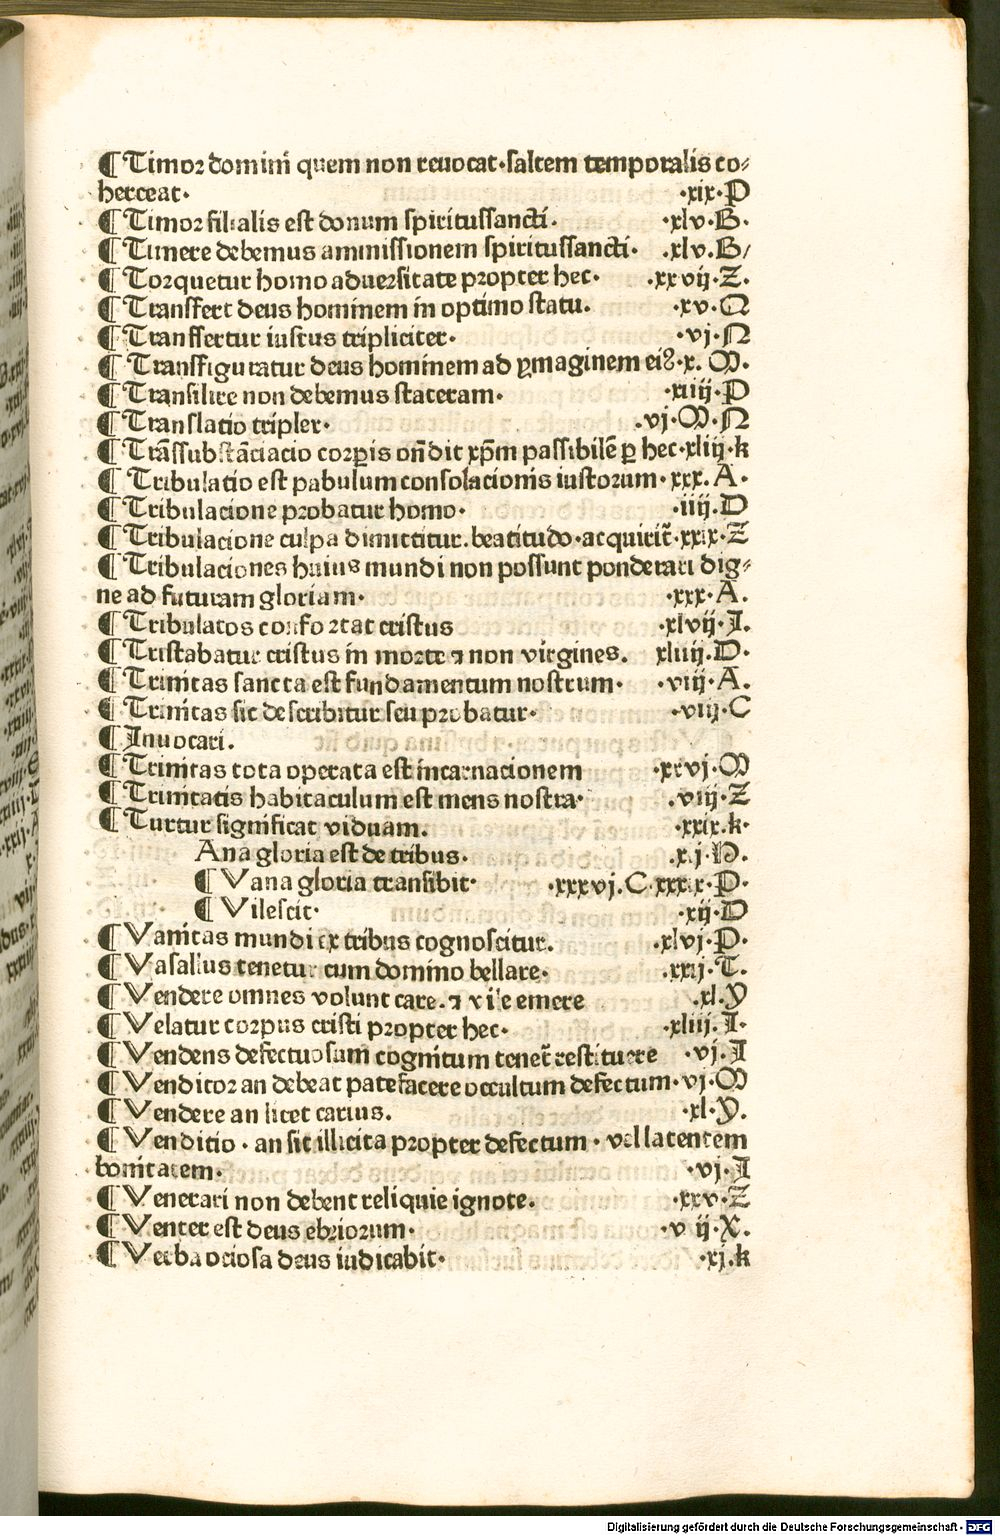 ¶ Timor domini quem non reuocat·saltem temporalis co⸗
herceat· ·xix·P
¶ Timor filialis est donum spiritussancti· ·xlv·B·
¶ Timere debemus ammissionem spiritussancti· ·xlv·B/
¶ Torquetur homo aduersitate propter hec· ·xxvij·Z·
¶ Transfert deus hominem in optimo statu. ·xv·Q
¶ Transfertur iustus tripliciter· ·vj·N
¶ Transfiguratur deus hominem ad ymaginem ei⁹·x. M·
¶ Transilire non debemus stateram· ·xiiij·P
¶ Translatio tripler· ·vj·M·N
¶ Trāssubstāciacio corꝑis on̄dit xp̄m passibilē ꝑ hec·xliij·k
¶ Tribulatio est pabulum consolacionis iustorum·xxx·A·
¶ Tribulacione probatur homo· ·iiij·D
¶ Tribulacione culpa dimittitur.beatitudo·acquirit̄·xxix·Z
¶ Tribulaciones huius mundi non possunt ponderari dig⸗
ne ad futuram gloriam· ·xxx·A.
¶ Tribulatos confortat cristus ·xlvij·I.
¶ Tristabatur cristus in morte ⁊ non virgines. xliiij.D·
¶ Trinitas sancta est fundamentum nostrum· ·viij·A.
¶ Trinitas sic describitur seu probatur· ·viij·C
¶ Inuocari.
¶ Trinitas tota operata est incarnacionem ·xxvj·M
¶ Trinitatis habitaculum est mens nostra· .viij·Z
¶ Turtur significat viduam. ·xxix·k·
Ana gloria est de tribus· .xj·P.
¶ Vana gloria transibit· ·xxxvj.C·xxxix·P·
¶ Vilescit· ·xij·D
¶ Vanitas mundi ex tribus cognoscitur. ·xlvj·P·
¶ Vasallus tenetur cum domino bellare· .xxij·T.
¶ Vendere omnes volunt care.⁊ vile emere .xl.Y
¶ Velatur corpus cristi propter hec· ·xliij.I·
¶ Vendens defectuosum cognitum tenet̄ restituere ·vj.I
¶ Venditor an debeat patefacere occultum defectum·vj·M
¶ Vendere an licet carius. ·xl·Y.
¶ Venditio·an sit illicita propter defectum·vel latentem
bonitatem· ·vj·I
¶ Venerari non debent reliquie ignote. ·xxv·Z
¶ Venter est deus ebriorum· ·v ij·X.
¶ Verba ociosa deus iudicabit· ·xj.k
Digitalisierung gefördert durch die Deutsche Forschungsgemeinschaft - DFG